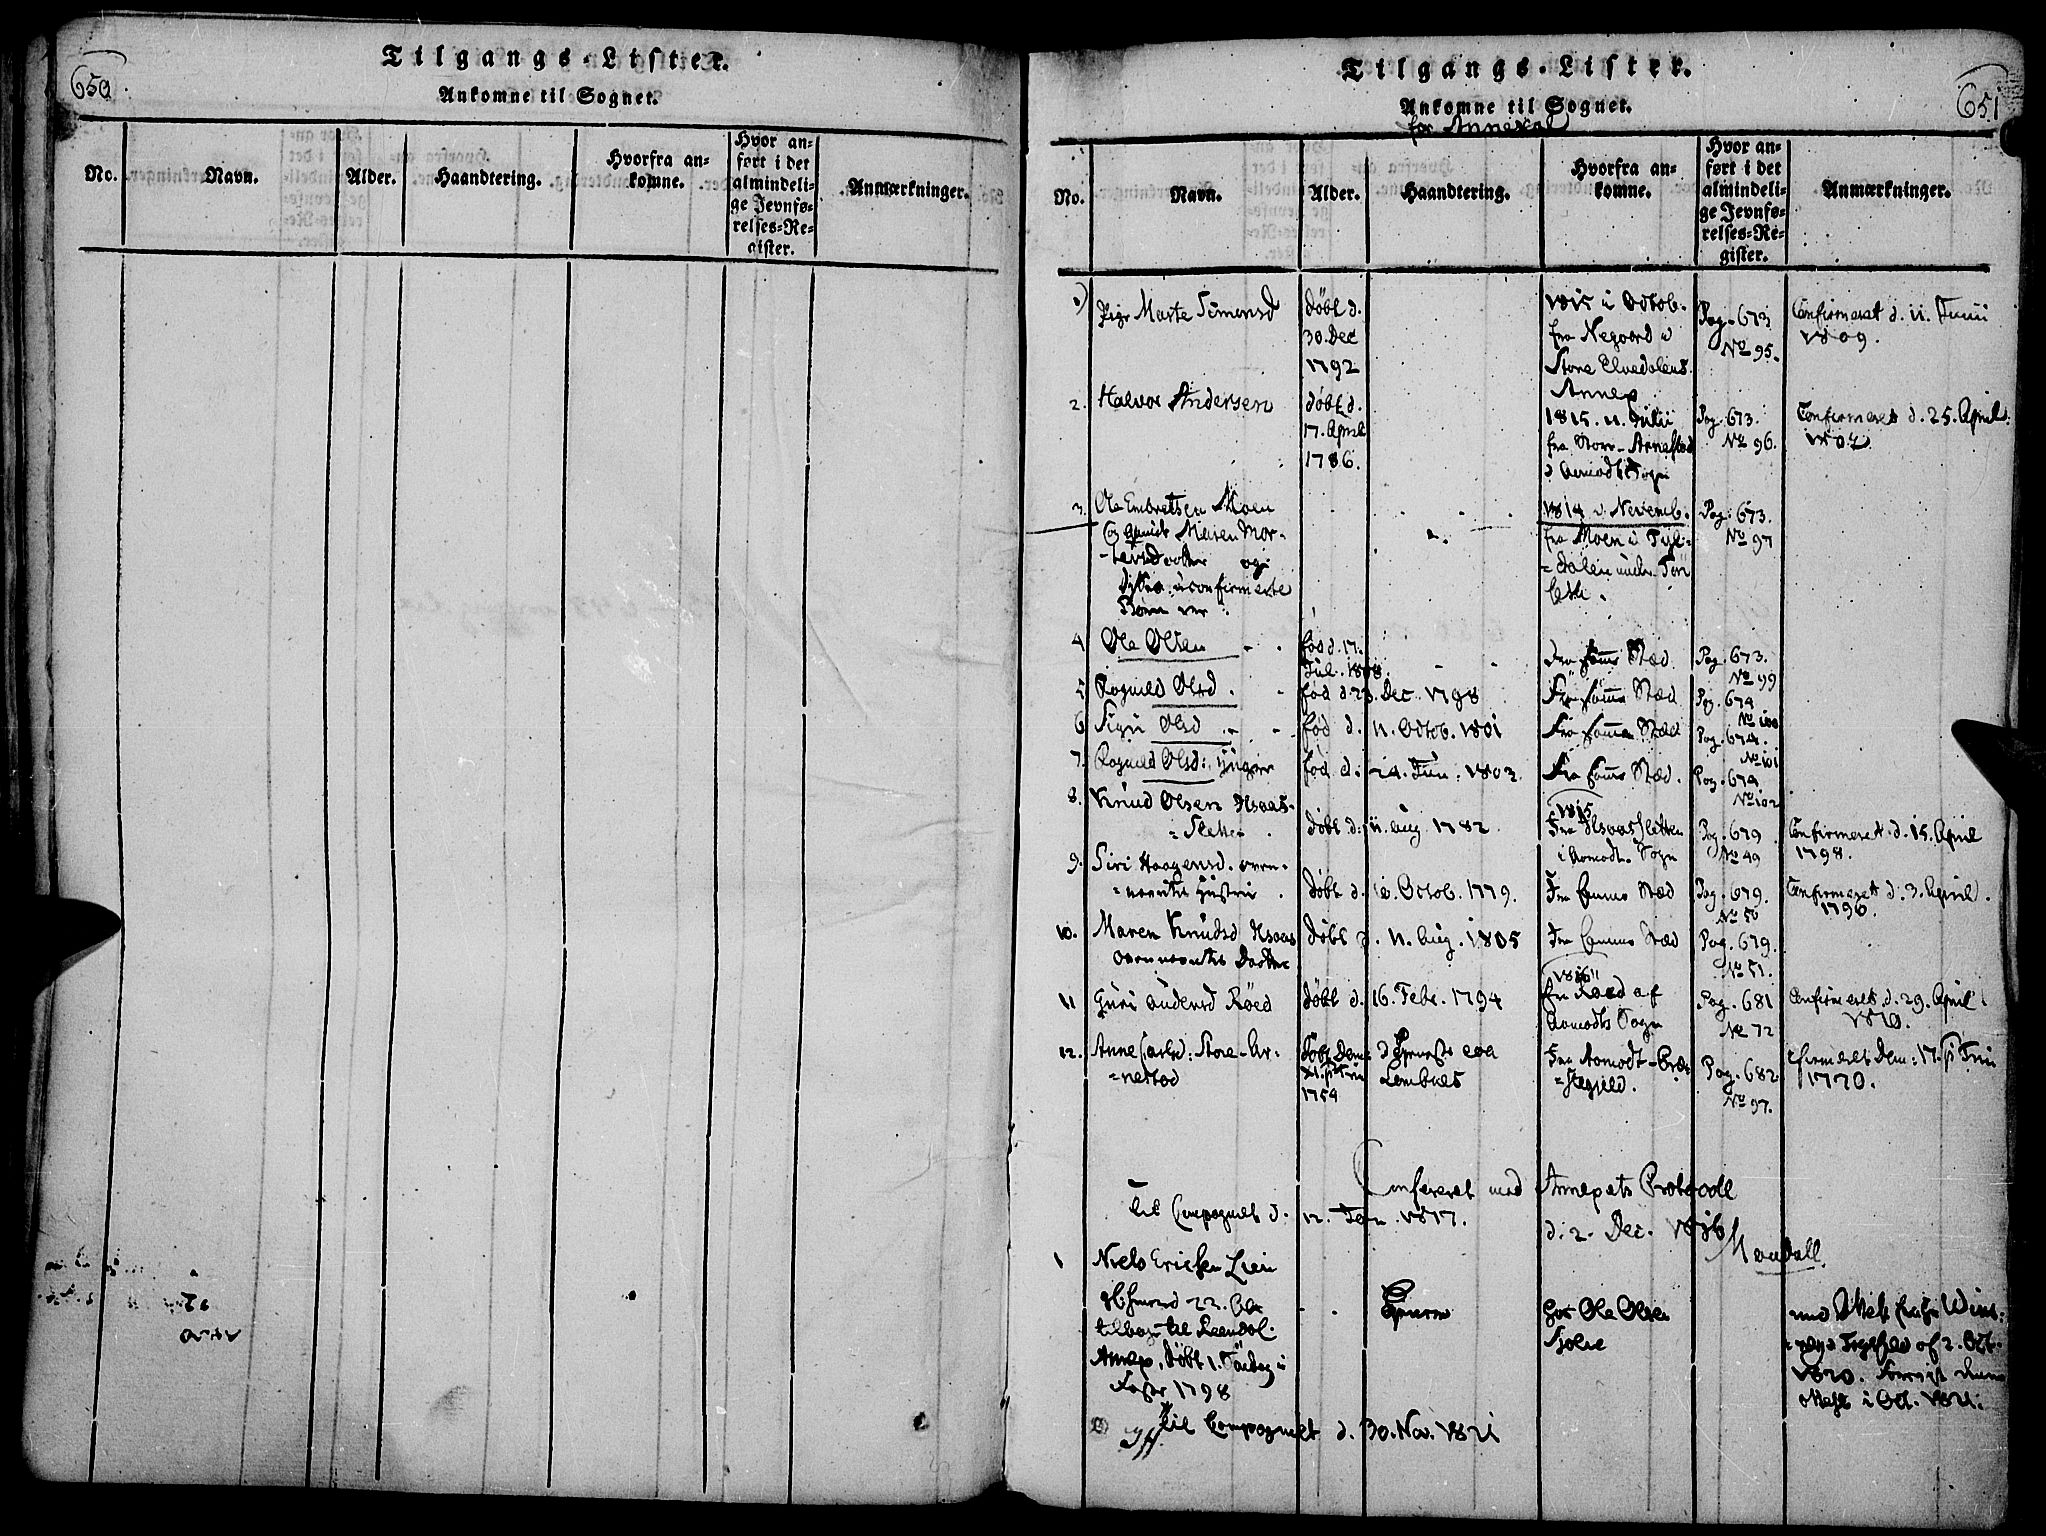 650
Tilgangs-Lister.
Ankomne til Sognet.
No.
Navn.
Alder.
Haandtering.
Hvorfra an-
komne.
Hvor an-
ført i det
almindeli-
ge Jevnfø-
relses-Re-
gister.
Anmærkninger.
651
Tilgangs-Lister.
Ankomne til Sognet.
for Annexet
No.
Navn.
Alder.
Haandtering.
Hvorfra an-
komne.
Hvor an-
ført i det
almindeli-
ge Jevnfø-
relses-Re-
gister.
Anmærkninger.
1)
Pige Marte Simensd
Døbt d.
30. Dec
1792
1815 i Octob.
fra Negaard i
Store Elvedalens
Annex
Pag. 673
No 95.
Confirmeret d. 11. Junii
1809.
2.
Halvor Andersen
Døbt d.
17. April
1786.
1815. 11. Julii
fra Store-Arnestad
i Aamodts Sogn
Pag. 673.
No 96.
Confirmeret d. 25. April
1802
3.
Ole Embretsen Moen
og Qvinde Maren Mor-
tensdotter og
disses uconfirmerte
Børn
1814 i Novemb.
fra Moen i Tyl-
dalen under Tøn
sett.
Pag. 673.
No 97
4
Ole Olsen
fød d. 17.
Jul. 1808
Fra samme Stæd
Pag. 673.
No 99
5
Ragnild Olsd.
fød d. 23. Dec. 1798
Fra samme Stæd
Pag. 674
No 100
6
Sigri Olsd
fød d. 11. Octob. 1801
Fra samme Stæd
Pag. 674.
No 101
7.
Ragnild Olsd: yngre
fød d. 24. Jun. 1803.
Fra samme Stæd.
Pag. 674
No 102
8.
Knud Olsen Hsaas-
Sletten
Døbt d. 11. Aug. 1782
1815
Fra Hsaas Sletten
i Aamodts Sogn
Pag. 679
No 49
Confirmeret d. 15. April
1798.
9.
Siri Haagensd. oven-
nævntes Hustrue
Døbt d. 10. Octob. 1779.
Fra samme Stæd
Pag. 679.
No 50
Confirmeret d. 3. April
1796.
10.
Maren Knudsd Hsaas
ovennævntes Datter
Døbt d. 11. Aug. 1805
Fra samme Stæd
Pag. 679.
No 51.
11
Guri Andersd Røed
Døbt d. 16. Febr. 1794
1816
fra Røed af
Aamodts Sogn
Pag. 681
No 72
Confirmeret d. 29. April
1810.
12.
Anne Carlsd: Store-Ar-
nestad
Døbt Dom:
p Trin
1754
Fra Aamodt-Præ-
stegjeld.
Pag. 682
No 97.
Confirmeret Dom: 17. p Trin
1770.
Confereret med Annexets Protocoll
d. 2. Dec. 1816
Moudall.
Til Compagniet d. 12. Jan. 1817.
1
Niels Ericksen Lien
tilbage til Reendal.
Annex, døbt 1. Søndag i
Faste 1798
hos Ole Olsen
Sjolie
af 2. Oct.
1820.
i Oct. 1821.
Til Compagniet d. 30. Nov. 1821